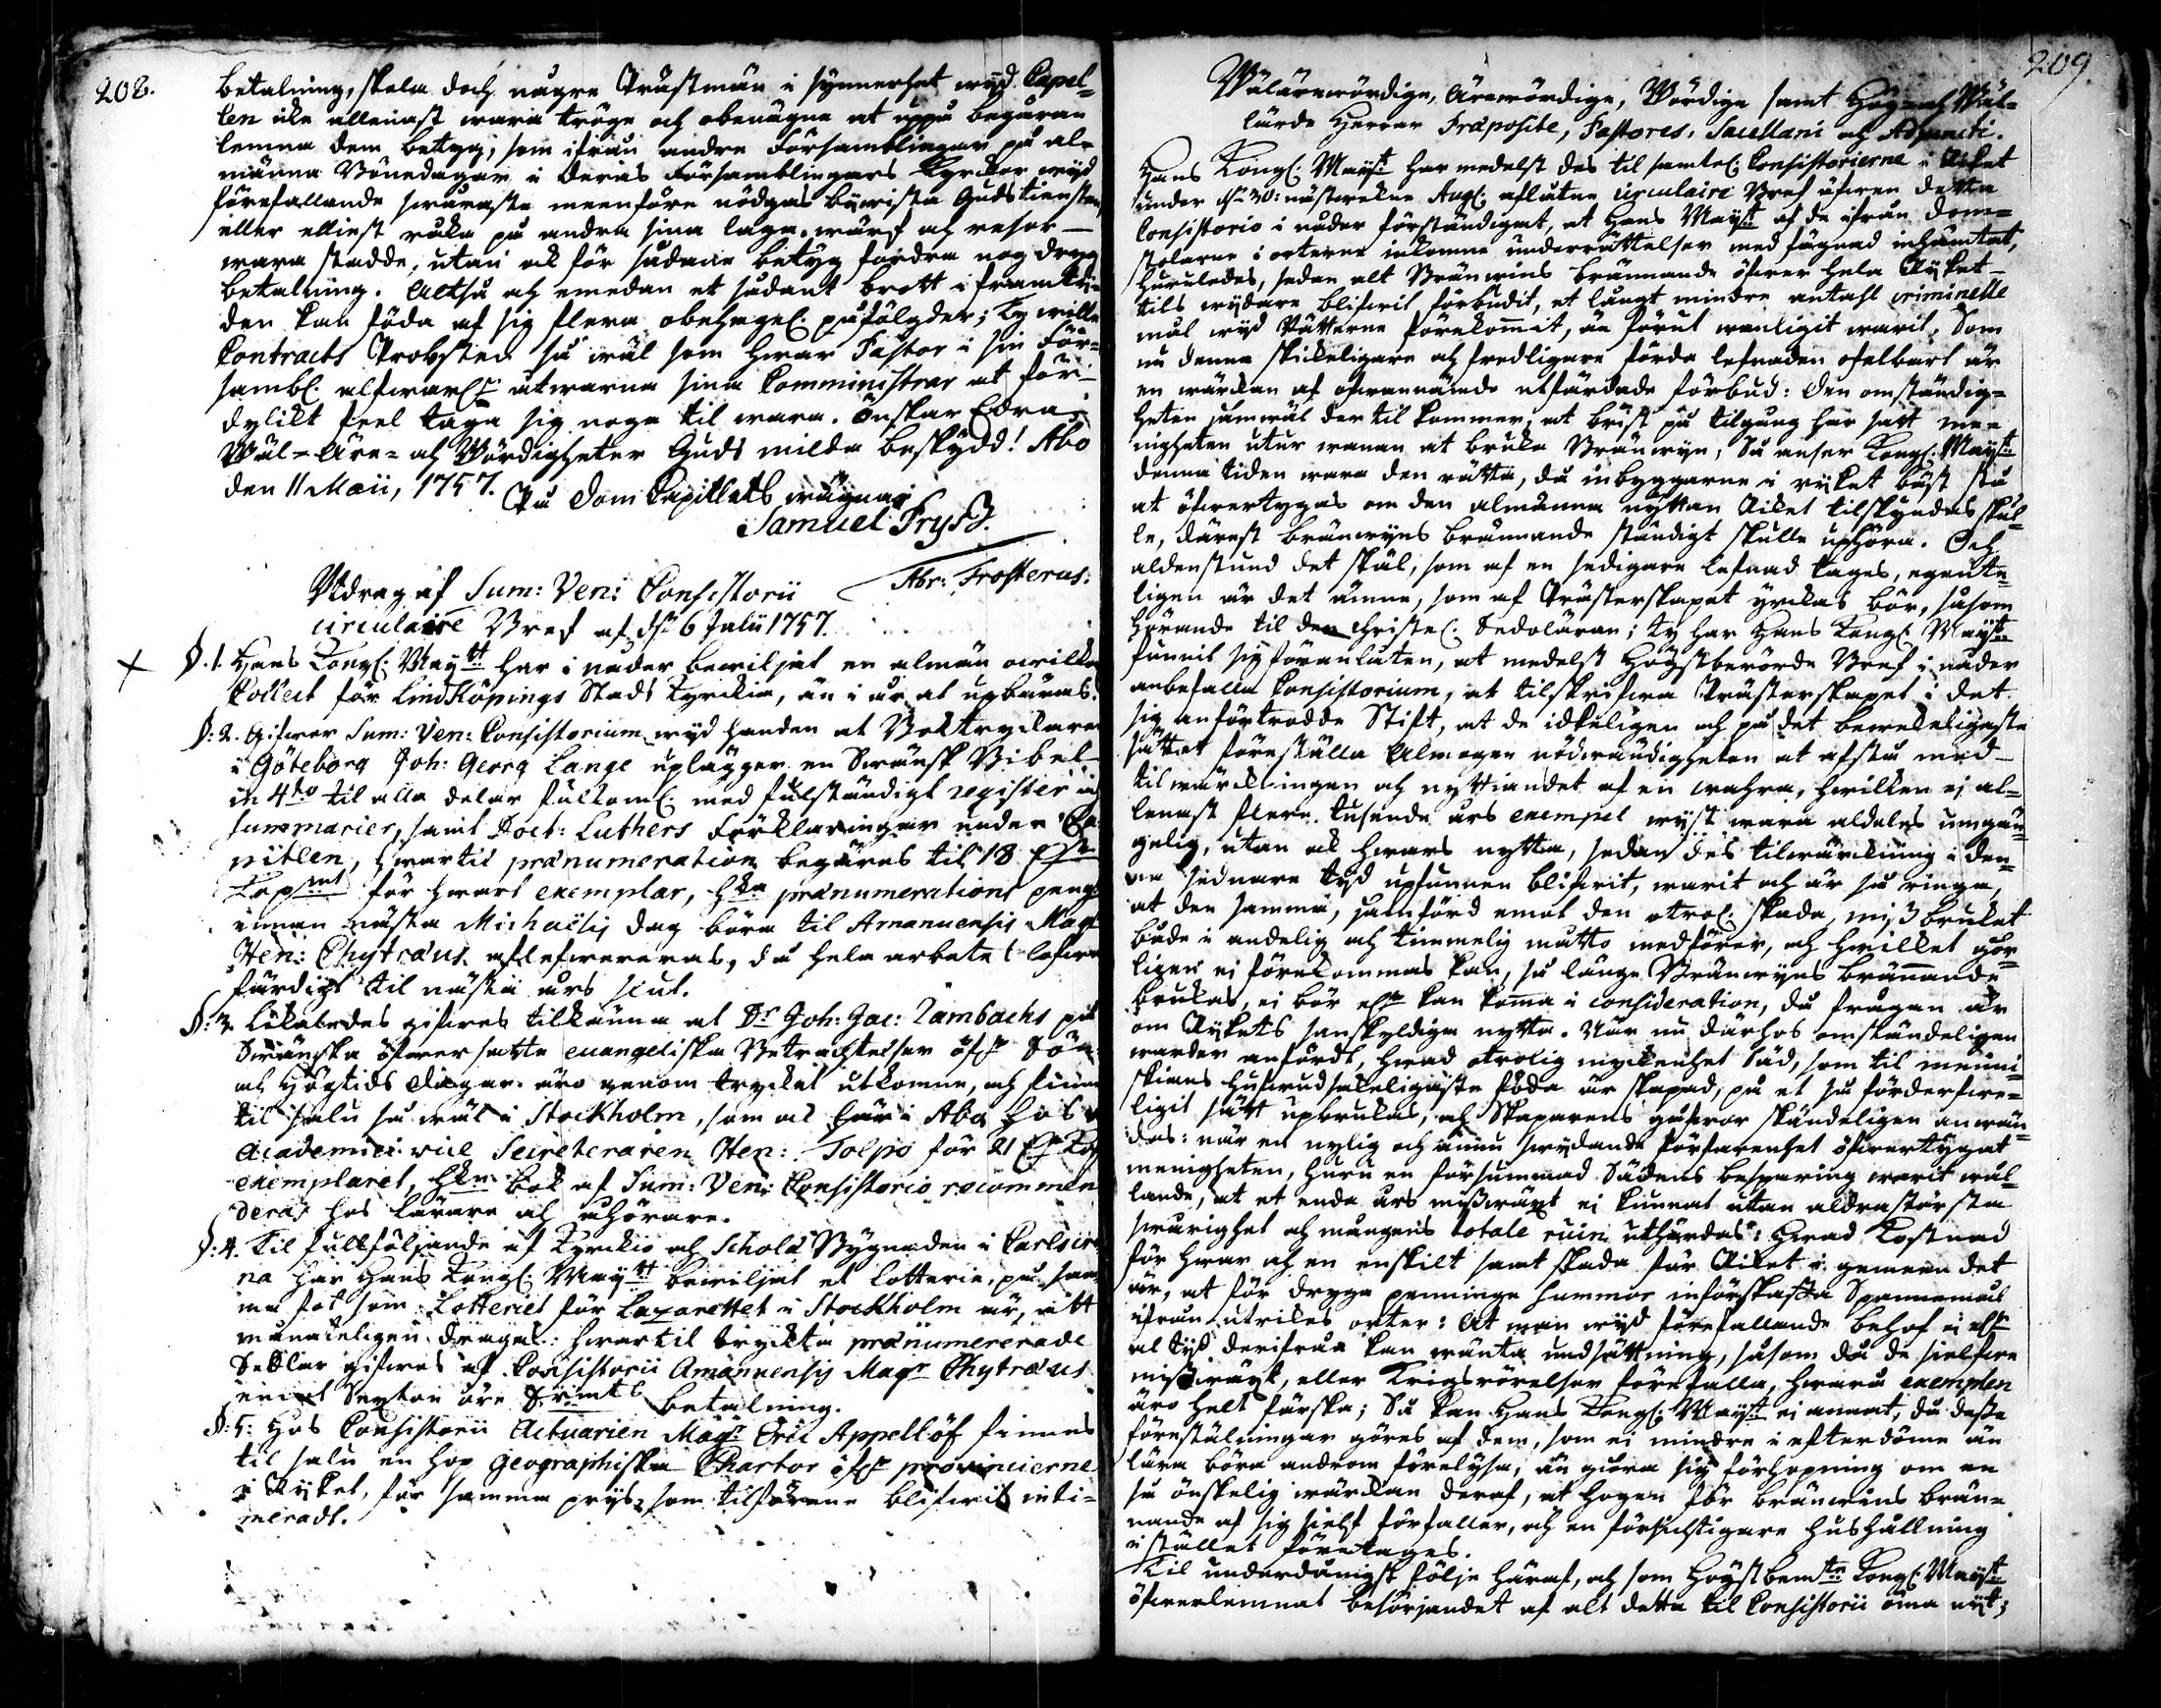 208.
betalning, skola doch någre Prästmän i synnerhet wyd Capel-
len icke allenast wara tröge och obenägne at uppå begäran
lemna dem betyg, som ifrån andre Församblingar på al-
männa Bönedagar i deras Församblingars Kyrckor wyd
förefallande swåraste meenföre nödgas bywista Gudstiensten,
eller elliest råka på andra sina laga wärf och resor
wara stadde, utan ock för sådane betyg fordra nog dryg
betalning. Altså och emedan et sådant brott i framti-
den kan föda af sig flera obehagel. påfölgder; Ty wille
Contracts Probsten så wäl som hwar Pastor i sin För-
sambl. alfwarl:n utwarna sina Comministrar at för
dylikt feel taga sig noga til wara. Önskar Edra
Wäl-Äre- och Wördigheter Guds milda beskydd! Åbo
den 11 Maii, 1757.
På Dom Capitlets wägnar
Samuel Pryss.
Abr: Frosterus.
Utdrag af Sum: Ven: Consistorii
circulaire Bref af d:n 6 Julii 1757.
§.1. Hans Kongl. Maytt har i nåder bewiljat en almän owilkor
Collect för Lindköpings Stads Kyrckia, än i år at upbäras.
§:2. Gifwer Sum: Ven: Consistorium wyd handen at Boktryckaren
i Göteborg Joh: Georg Lange uplägger en Swänsk Bibel
in 4:to til alla delar fulkoml. med fulständigt register och
summarier, samt Doct: Luthers Förklaringar under Ca-
pitlen, hwartil prænumeration begäres til 18
Kopmt för hwart exemplar, hka prænumerations peng:r
innan nästa Michaelis dag böra til Amanuensis Mag:r
Hen: Chytræus aflefwereras, då hela arbetet lofwas
färdigt til nästa års slut.
§:3. Likaledes gifwes tilkänna at D:r Joh: Jac: Rambachs på
Swänska öfwersatta euangeliska Betrachtelser öfr Sön-
och Högtids Dagar äro genom trycket utkomne, och finnas
til salu så wäl i Stockholm, som ock här i Åbo hos
Academiei vice Secreteraren Hen: Tolpo för 21
exemplaret, hken bok af Sum: Ven: Consistorio recommen
deras hos lärare och åhörare.
§:4. Til fullföljande af Kyrckio och Schola Bygnaden i Carlscro
na har Hans Kongl. Maytt bewiljat et Lotterie, på sam-
ma fot som Lotteriet för Lazarettet i Stockholm är, att
månateligen drages: hwartil tryckta prænumererade
Sedlar gifwes af Consistorii Amanuensis Mag:r Chytræus
emot Sexton öre S:rmts betalning.
§:5: Hos Consistorii Actuarien Mag:r Eric Appellöf finnes
til salu en hop Geographiska Chartor öfr provincierne
i Ryket, för samma prys, som tilförene blifwit inti-
meradt.
209
Wälärewördige, Ärewördige, Wördige samt Hög- och Wäl-
lärde Herrar Præposite, Pastores, Sacellani och Adjuncti.
Hans Kongl. Mayst. har medelst des til samtel. Consistorierne i Riket
under d:n 30: nästwekne Augl: aflåtne circulaire Bref äfwen detta
Consistorio i nåder förständigat, at Hans Mayst. af de ifrån Dom-
stolarne i orterne inkomne underrättelser med fägnad inhämtat,
huruledes, sedan alt Bränwins brännande öfwer hela Ryket
tils wydare blifwit förbudit, et långt mindre antahl criminelle
mål wyd Rätterne förekommit, än förut wanligit warit. Som
nu denna skickeligare och fredligare förda lefnaden ofelbart är
en wärckan af ofwannämde utfärdade förbud: Den omständig-
heten jämwäl der til kommer, at brist på tilgång har satt men
nigheten utur wanan at bruka Bränwyn; Så anser Kongl. Mayst.
denna tiden wara den rätta, då inbyggarne i ryket bäst stå
at öfwertygas om den almänna nyttan Riket tilskyndas skul-
le, därest bränwyns brännande ständigt skulle uphöra. Och
aldenstund det skäl, som af en sedigare lefnad tages, egente-
ligen är det ämne, som af Prästerskapet yrckas bör, såsom
hörande til den Christel. Sedoläran; ty har Hans Kongl. Mayst.
funnit sig föranlåten, at medelst Högstberörde Bref i nåder
anbefalla Consistorium, at tilskrifwa Prästerskapet i det
sig anförtrodde Stift, at de idkeligen och på det beweckeligaste
sättet föreställa Almogen nödwändigheten at afstå med
tilwärckningen och nyttiandet af en wahra, hwilken ej al-
lenast flere tusende års exempel wyst wara aldeles umgän-
gelig, utan ock hwars nytta, sedan des tilwärckning i den-
na sednare tyd upfunnen blifwit, warit och är så ringa,
at den samma, jämförd emot den otrol. skada, missbruket
både i andelig och timmelig måtto medförer, och hwilket gör-
ligen ej förekommas kan, så länge Bränwyns brännande
brukas, ei bör elr kan koma i consideration, då frågan är
om Rykets sanskyldiga nytta. När nu därhos omständeligen
warder anfördt, hwad otrolig myckenhet Säd, som til menni-
skians hufwudsakeligaste föda är skapad, på et så förderfwe-
ligit sätt upbrukas, och Skaparens gåfwor skändeligen anwän-
das: när en nylig och ännu swydande förfarenhet öfwertygat
menigheten, huru en försummad Sädens besparing warit wål-
lande, at et enda års misswäxt ei kunnat utan aldrastörsta
swårighet och mångens totale ruin uthärdas: Hwad Kostnad
för hwar och en enskilt samt skada för Riket i gemeen det
är, at för dryga penninge summor införskaffa Spannemål
ifrån utrikes orter: At man wyd förefallande behof ei elr
al tyd derifrån kan wänta undsättning, såsom då de sielfwe
misswäxt, eller Krigsrörelser förefalla, hwarå exemplen
äro helt färska; Så kan Hans Kongl: Mayst. ei annat, då desse
förestälningar göres af dem, som ei mindre i efterdöme än
lära böra androm förelysa, än giöra sig förhopning om en
så önskelig wärckan deraf, at hogen för bränwins brän-
nande af sig sielf förfaller, och en försichtigare hushållning
i stället företages.
Til underdånigst följe häraf, och som Högstbemte Kongl. Mayst.
öfwerlemnat besörjandet af alt detta til Consistorii öma nyt;